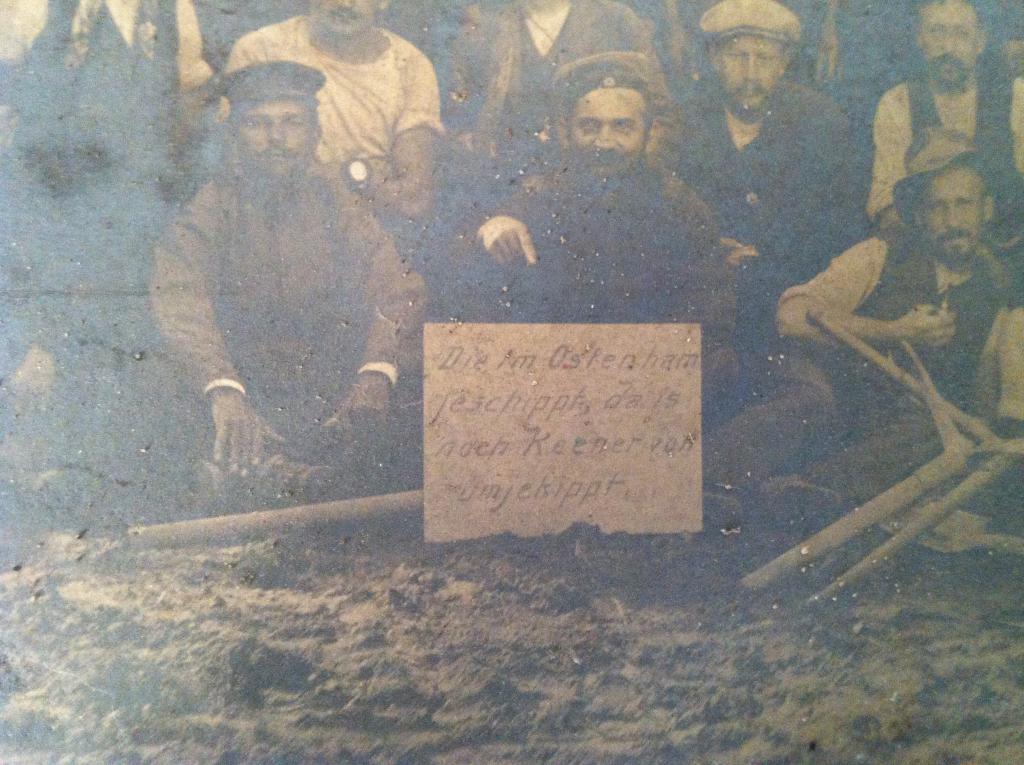 Die im Osten ham
jeschippt, da is
noch Keener von
umjekippt.